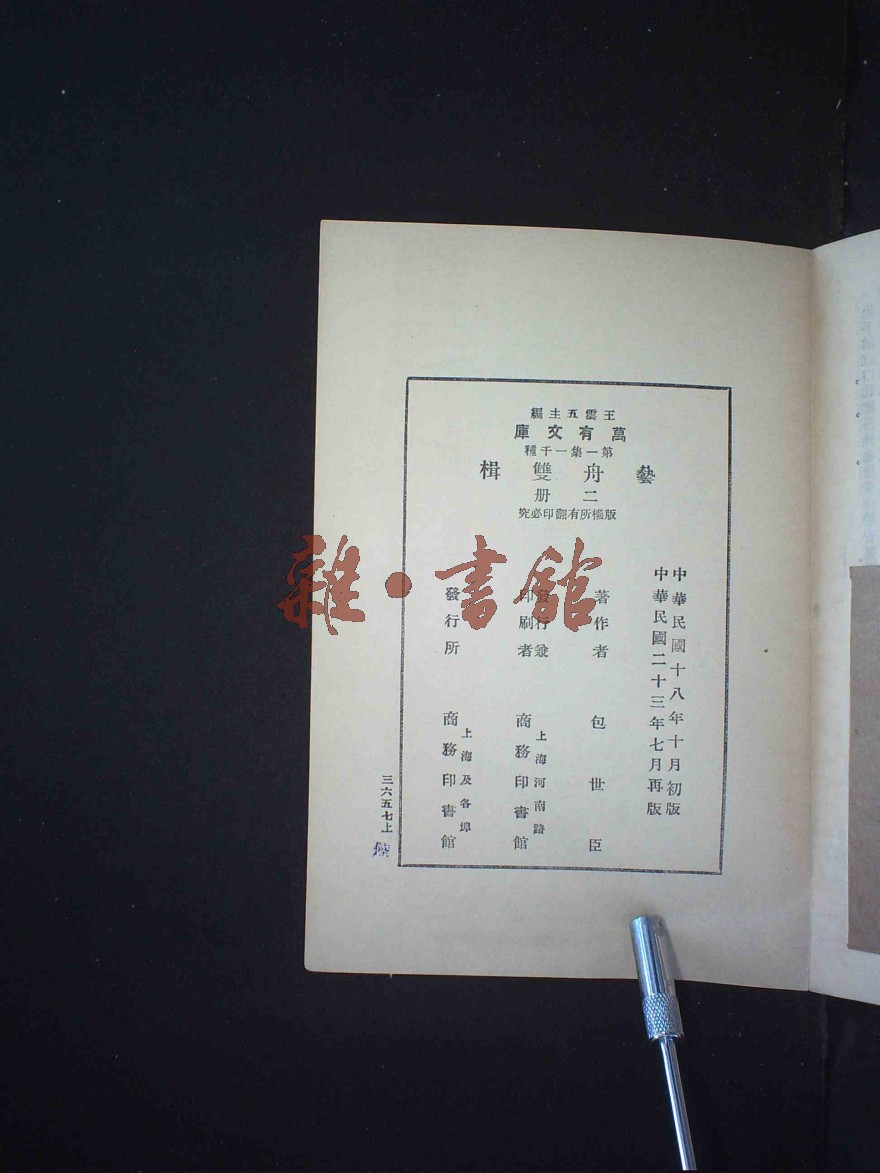 王雲五主編
萬有文庫
第一集一千種
藝舟雙楫
二册
版權所有翻印必究
中華民國十八年十月初版
中華民國二十三年七月再版
著作者 包世臣
發行兼
印刷者
上海河南路
商務印書館
發行所
上海及各埠
商務印書館
三六五七上
雜·書館